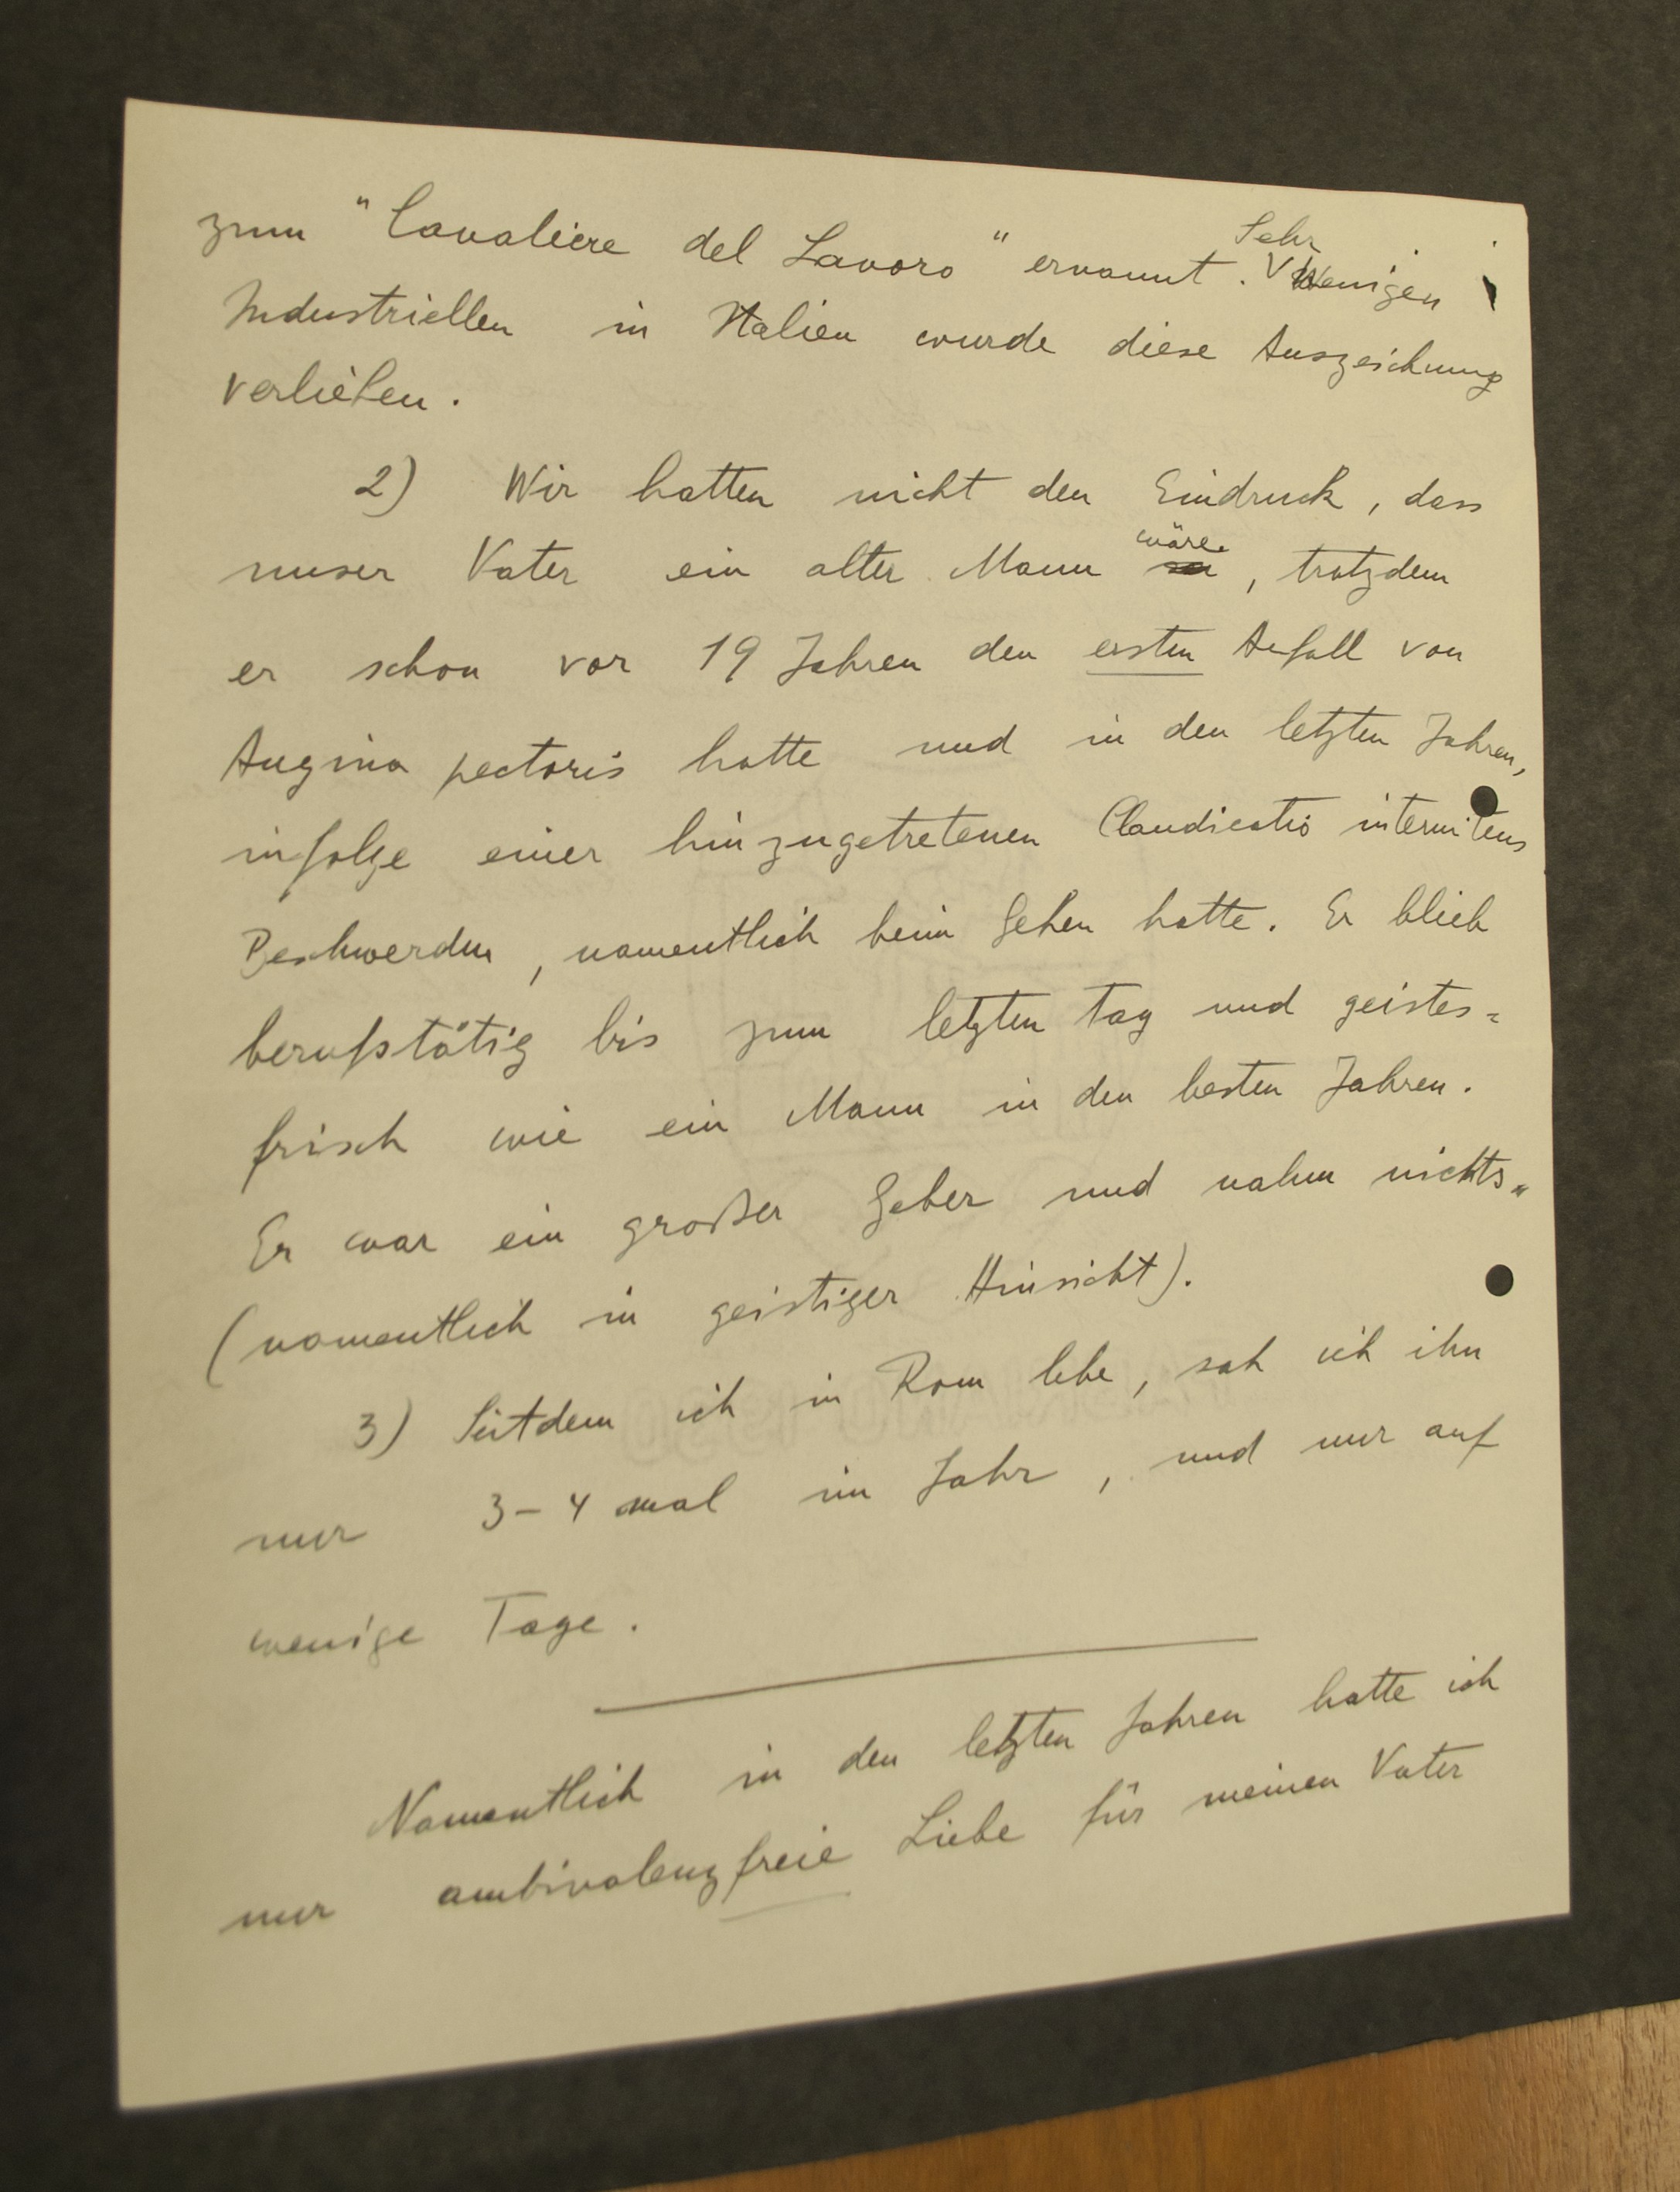 zum "Cavaliere del Lavoro" ernannt. Sehr wenigen
Industriellen in Italien wurde diese Auszeichnung
verliehen.
2) Wir hatten nicht den Eindruck, dass
unser Vater ein alter Mann wäre, trotzdem
er schon vor 19 Jahren den ersten Anfall von
Angina pectoris hatte und in den letzten Jahren,
infolge einer hinzugetretenen Claudicatio intermitens
Beschwerden, namentlich beim Gehen hatte. Er blieb
berufstätig bis zum letzten Tag und geistes=
frisch wie ein Mann in den besten Jahren.
Er war ein großer Geber und nahm nichts.
(namentlich in geistiger Hinsicht).
3) Seitdem ich in Rom lebe, sah ich ihn
nur 3-4 mal im Jahr, und nur auf
wenige Tage.
Namentlich in den letzten Jahren hatte ich
nur ambivalenzfreie Liebe für meinen Vater